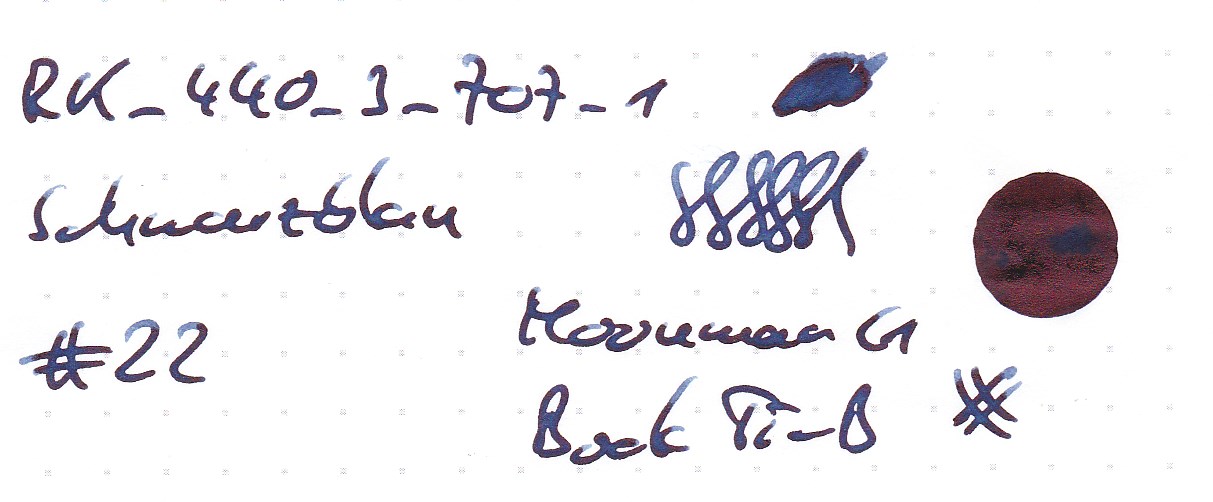 RK_440_3_707_1
Schwarzblau
#22
Moonman G1
Bock Ti-B
#